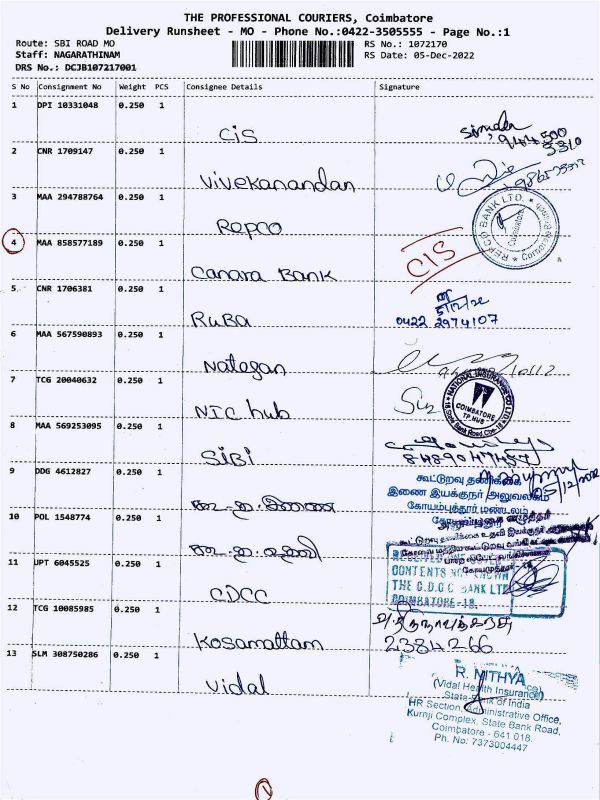 THE PROFESSIONAL COURIERS, Coimbatore
Delivery Runsheet - MO - Phone No.:0422-3505555 - Page No.:1
Route: SBI ROAD MO
RS No.: 1072170
Staff: NAGARATHINAM
RS Date: 05-Dec-2022
DRS No.: DCJB107217001
S No Consignment No Weight PCS Consignee Details Signature
1 DPI 10331048 0.250 1
CIS
2 CNR 1709147 0.250 1
Vivekanandan
3 MAA 294788764 0.250 1
Repco
REPCO BANK LTD.
Coimbatore
4 MAA 858577189 0.250 1
CIS
Canara Bank
5 CNR 1706381 0.250 1
5/12/22
RuBa
0422 2974107
6 MAA 567590893 0.250 1
Natesan
7 TCG 20040632 0.250 1
NATIONAL INSURANCE CO LTD.
COIMBATORE
TP.HUB
NIC hub
8 MAA 569253095 0.250 1
SIBI
9 DDG 4612827 0.250 1
கூட்டுறவு தணிக்கை
இணை இயக்குநர் அலுவலகம்
கோயம்புத்தூர் மண்டலம்
கூ.த.இணை
10 POL 1548774 0.250 1
11 UPT 6045525 0.250 1
CONTENTS NOT KNOWN
THE C.D.C.C BANK LTD
COIMBATORE-18.
CDCC
12 TCG 10085985 0.250 1
Kosamattam
2384266
13 SLM 308750286 0.250 1
Vidal
R. NITHYA
(Vidal Health Insurance)
State Bank of India
HR Section, Administrative Office,
Kurnji Complex, State Bank Road,
Coimbatore - 641 018.
Ph. No: 7373004447
1